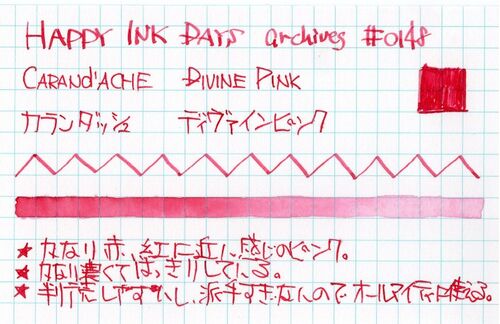 HAPPY INK DAYS archives #0148
CARAND'ACHE DIVINE PINK
カランダッシュ ディヴァインピンク
★ かなり赤、紅に近い感じのピンク。
★ かなり濃くてはっきりしている。
★ 判読しやすいし、派手すぎないのでオールマイティに使える。